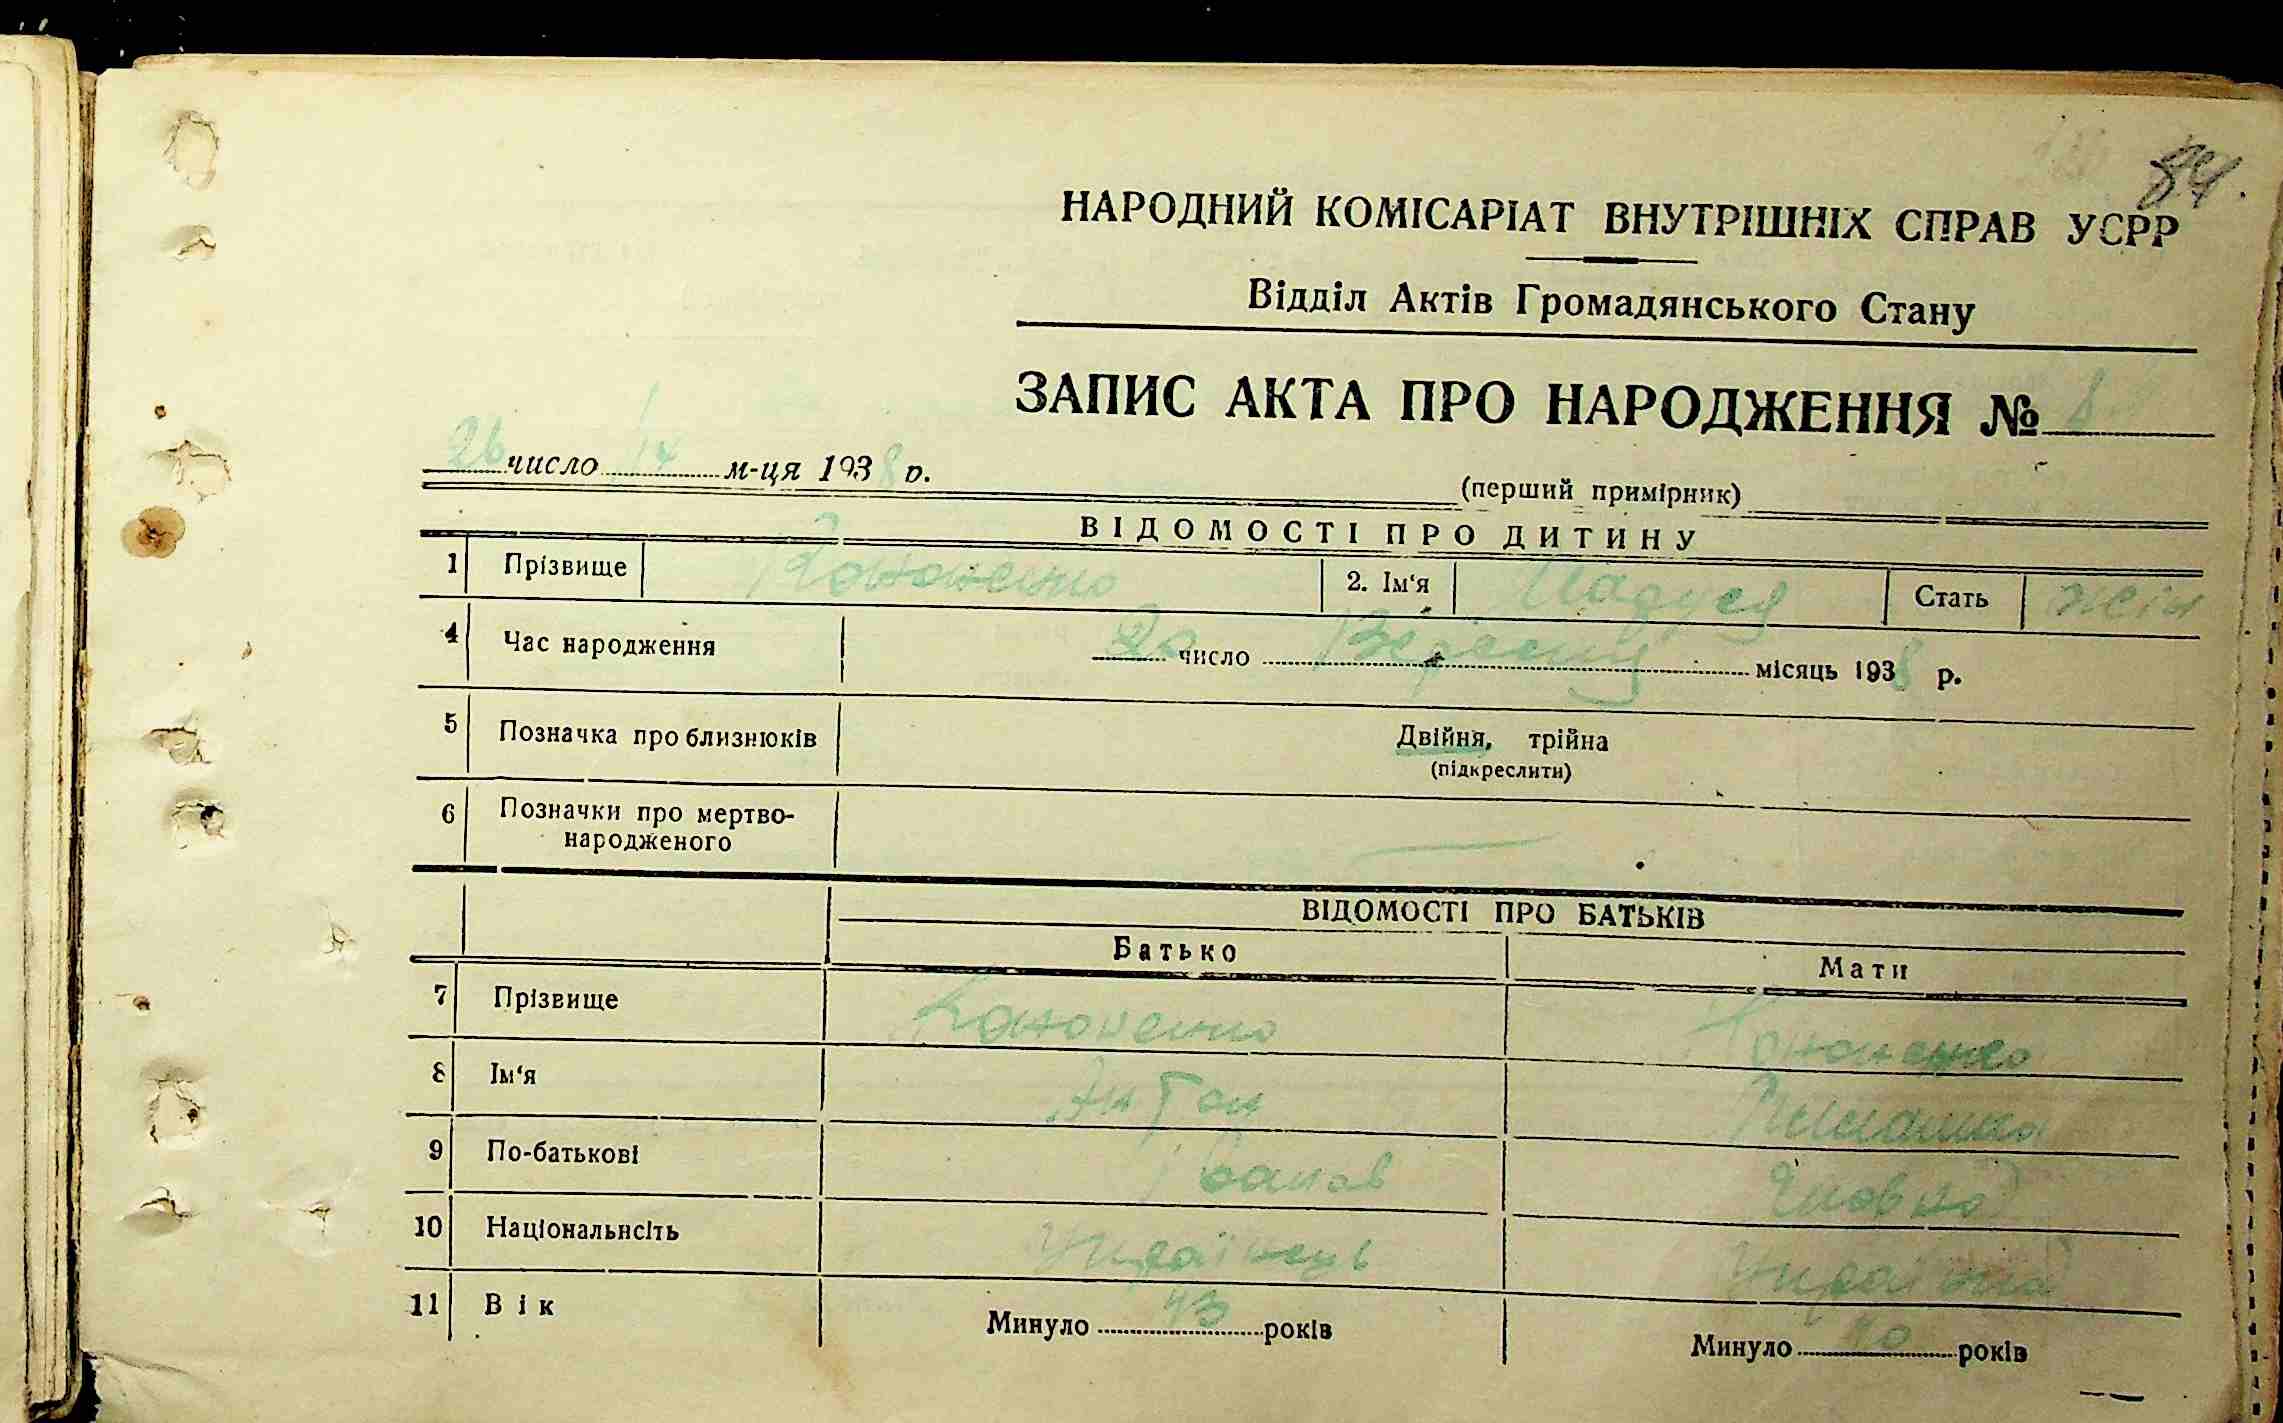 84.
НАРОДНИЙ КОМІСАРІАТ ВНУТРІШНІХ СПРАВ УСРР
Відділ Актів Громадянського Стану
ЗАПИС АКТА ПРО НАРОДЖЕННЯ № 8
26 число м-ця 1938 р.
(перший примірник)
ВІДОМОСТІ ПРО ДИТИНУ
1 Прізвище Кононенко 2. Ім'я Стать жін
4 Час народження число місяць 1938 р.
5 Позначка про близнюків Двійня, трійна
(підкреслити)
6 Позначки про мертво-
народженого
ВІДОМОСТІ ПРО БАТЬКІВ
Батько Мати
7 Прізвище Кононенко Кононенко
8 Ім'я Антон
9 По-батькові Іванов
10 Національнсіть Українець Українка
11 Вік Минуло 43 років Минуло 40 років